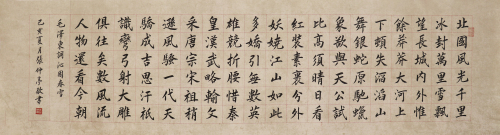 北國風光千里
冰封萬里雪飄
望長城內外惟
餘莽莽大河上
下頓失滔滔山
舞銀蛇原馳蠟
象欲與天公試
比高須晴日看
紅裝素裹分外
妖嬈江山如此
多嬌引無數英
雄競折腰惜秦
皇漢武略輸文
采唐宗宋祖稍
遜風騷一代天
驕成吉思汗祇
識彎弓射大雕
俱往矣數風流
人物還看今朝
毛澤東詞沁園春雪
己亥夏月張仲亭敬書